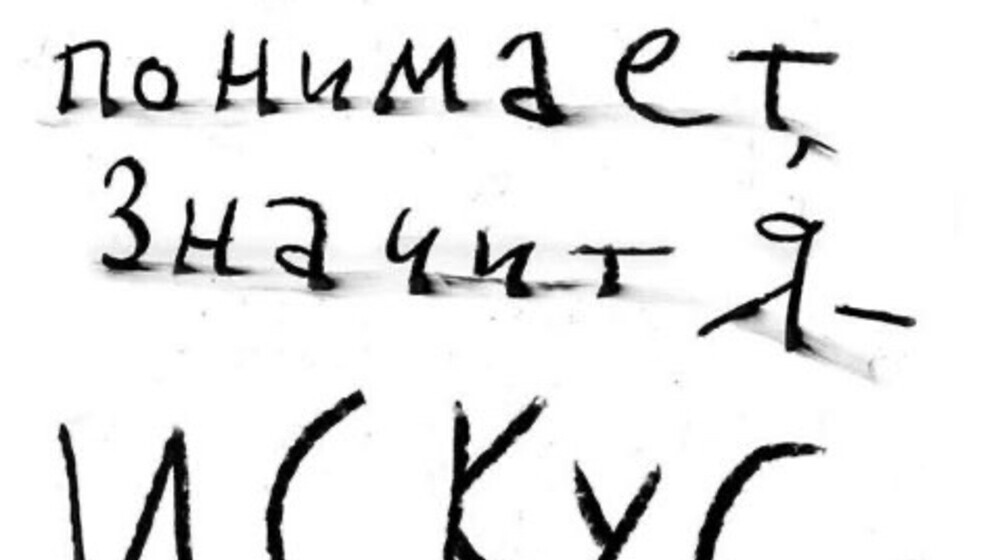 понимает,
значит я-
ИСКУС